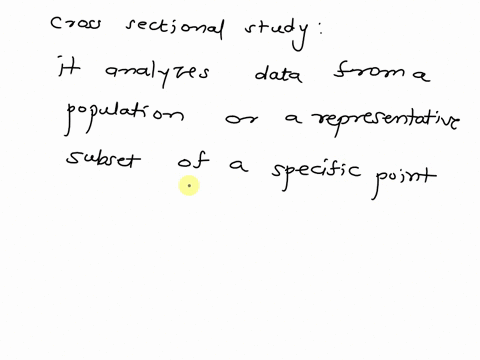 cross sectional study:
it analyzes data from a
population or a representative
subset of a specific point